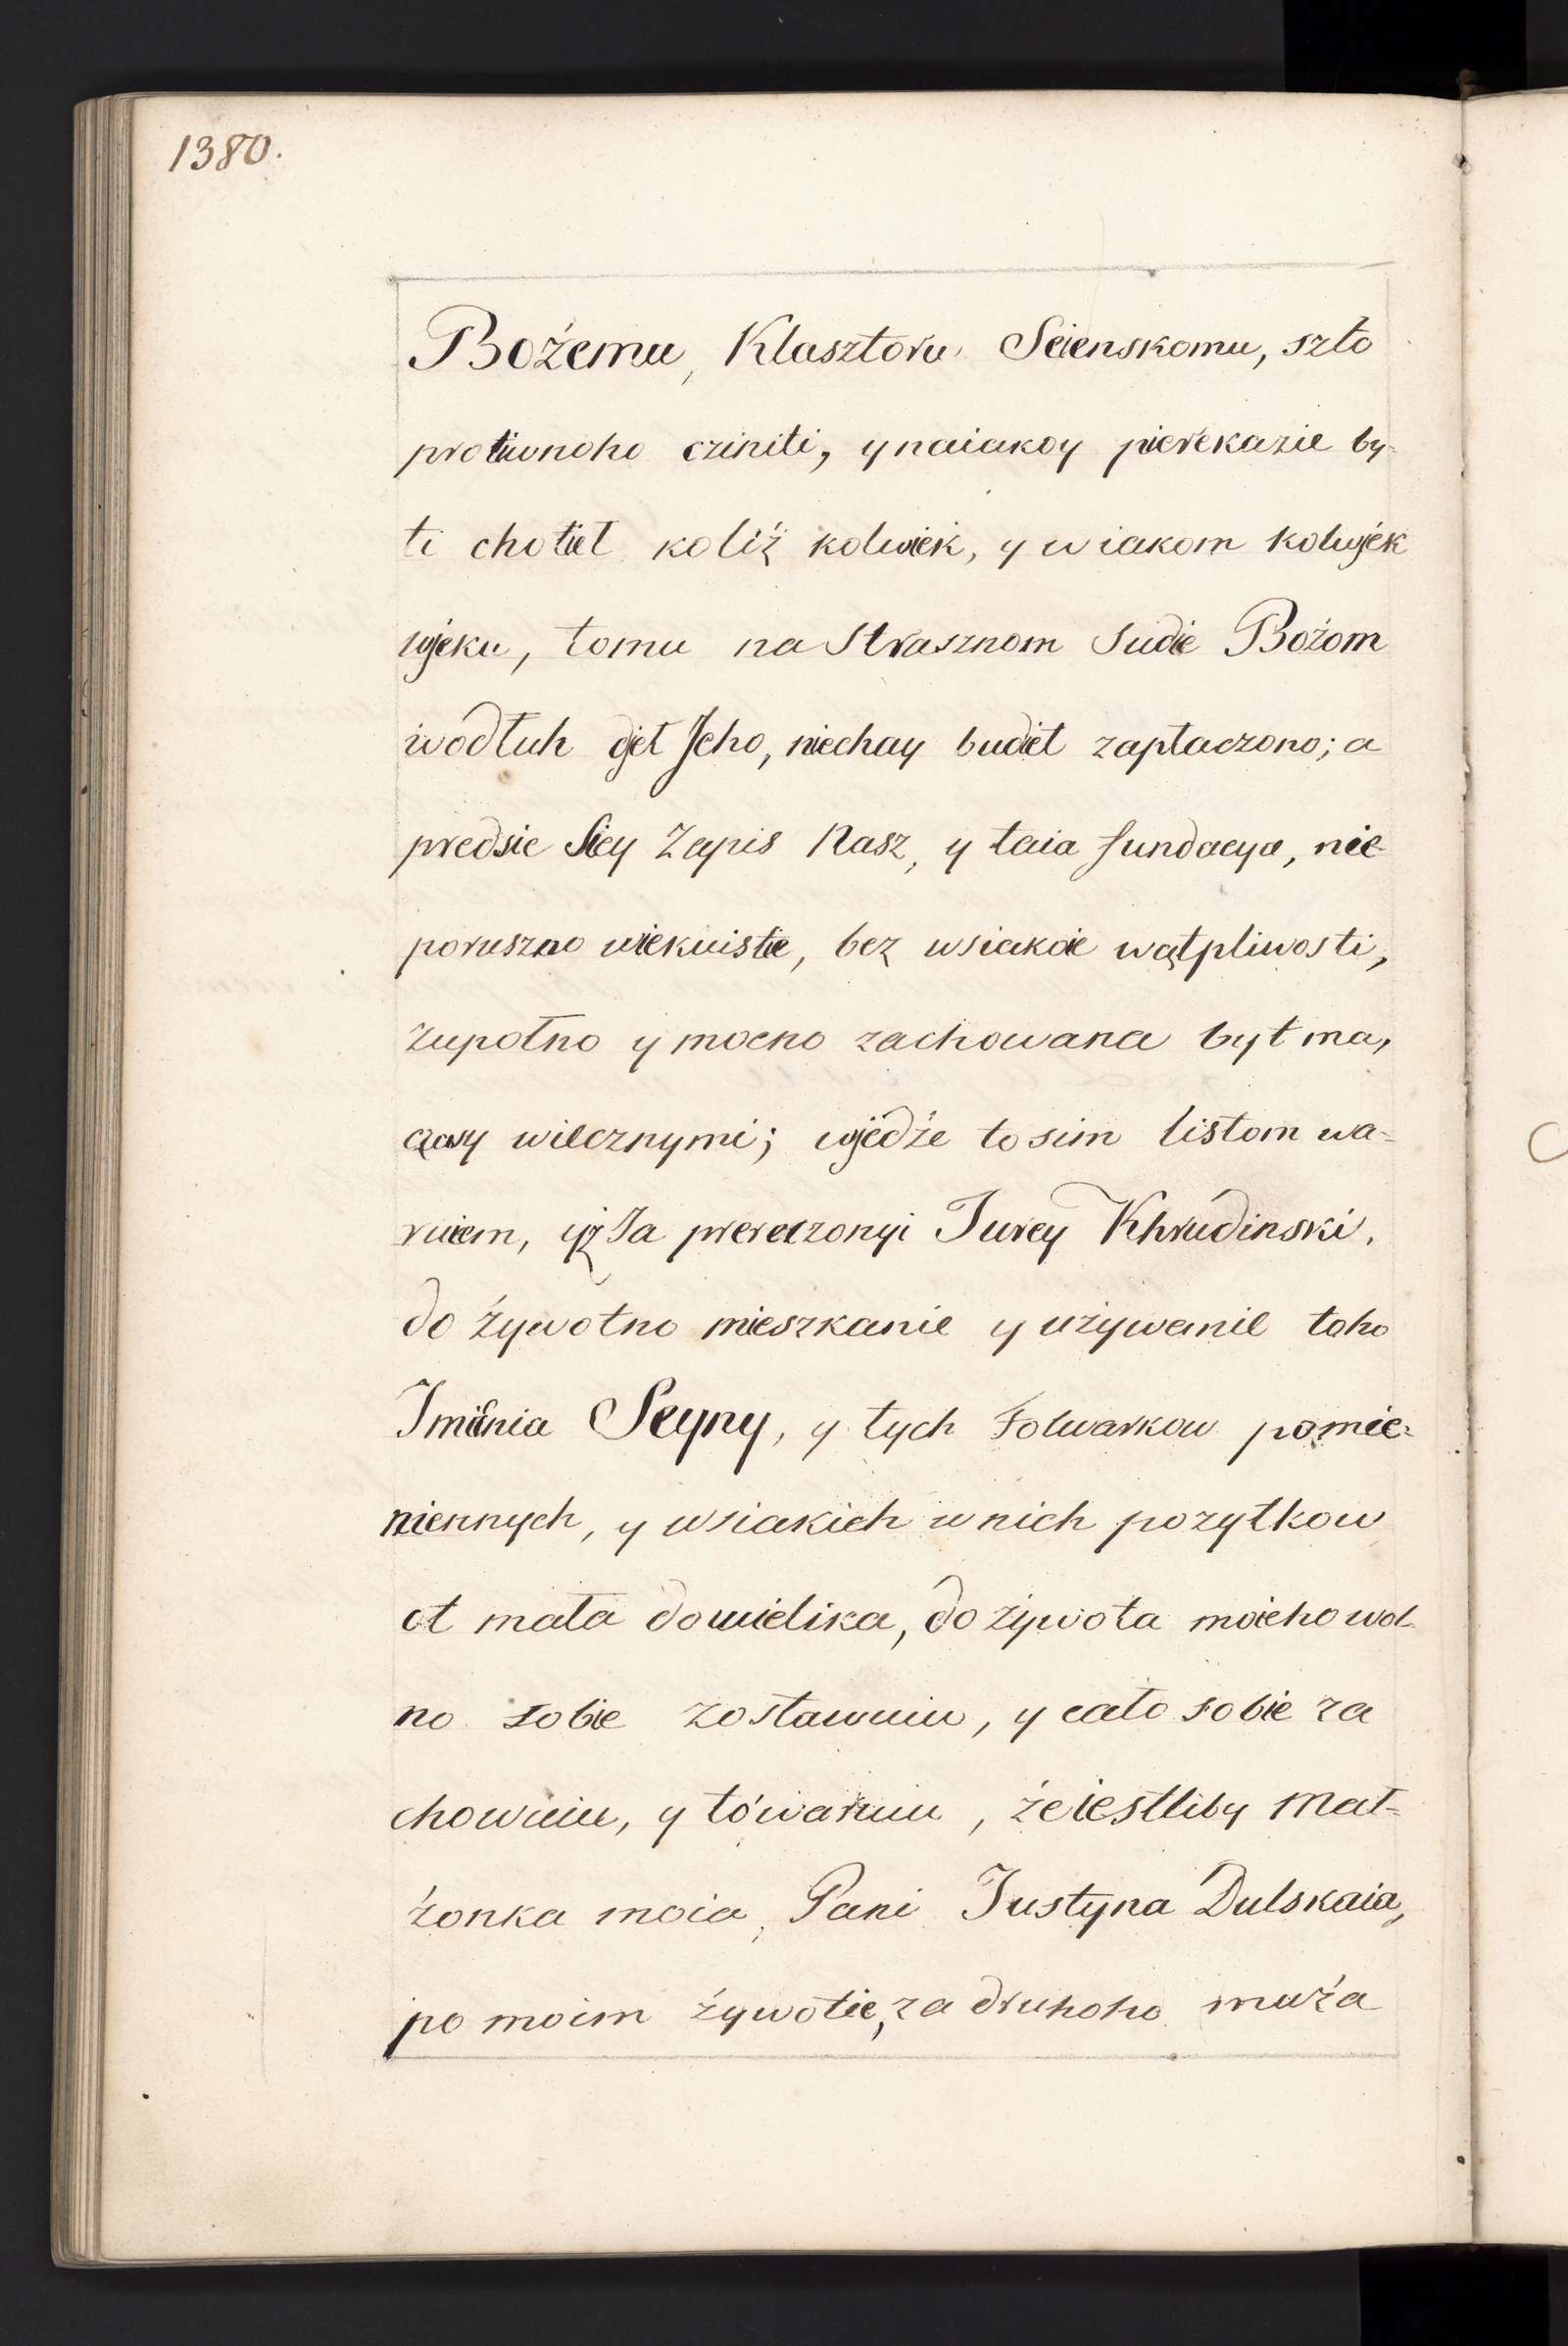 1380.
Bożemu, Klasztoru Seienskomu, szto
protiwnoho cziniti, y naiakoy pierekazie by-
ti chotieł koliż kolwiek, y w iakom kolwjek
wjeku, tomu na Strasznom Sudie Bożom
wodłuh djeł Jeho, niechay budiet zapłaczono; a
predsie Siey Zapis Nasz, y taia fundacya, nie-
poruszno wiekuistie, bez wsiakoie wątpliwosti,
zupołno y mocno zachowana byt ma,
czasy wiecznymi; wjedże to sim listom wa-
ruiem, yż Ja prereczonyi Jurey Khrudinski,
do żywotno mieszkanie y używanie toho
Imienia Seyny, y tych Folwarkow pomie-
niennych, y wsiakich w nich pożytkow
ot mała do wielika, do żywota moieho wol-
no sobie zostawuiu, y cało sobie za
chowuiu, y to waruiu, że iestliby Mał-
żonka moia, Pani Justyna Dulskaia,
po moim żywotie, za druhoho muża